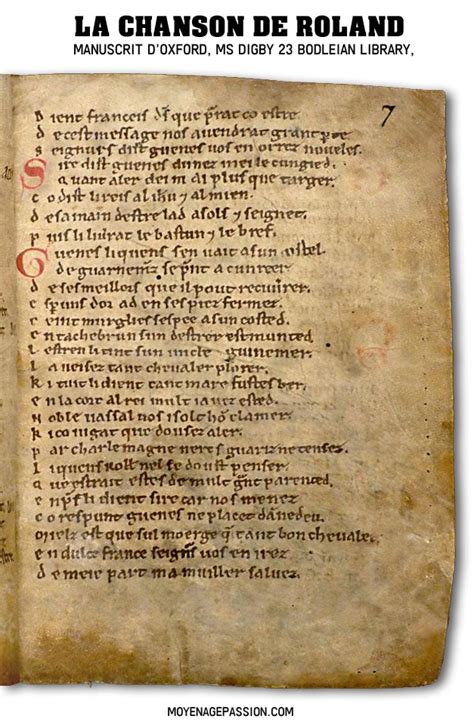 LA CHANSON DE ROLAND
MANUSCRIT D'OXFORD, MS DIGBY 23 BODLEIAN LIBRARY,
7
Dient franceis d̄s que p̄rat co estre
d e cest message nos auendrat grant p̄te
s eignurs dist guenes uos en orrez noueles.
Sire dist guenes dunez mei le cungied.
Quant aler dei ni ai plus que targer.
c o dist li reis al ih̄u ⁊ al mien.
d e sa main destre lad asols ⁊ seignet.
p uis li liurat le bastun ⁊ le bref.
Guenes li quens sen uait a sun ostel
De guarnemz se p̄nt a cunreer
d e ses meillors que il pout recuurer.
e speruns dor ad en ses piez fermez.
c eint murgles sespee a sun costed.
e n tachebrun sun destrer est munted
l estreu li tint sun uncle guinemer.
l a ueisez tant cheualer plorer.
k i tuit li dient tant mare fustes ber.
e n la cort al rei mult i auez ested.
n oble uassal uos i solt hō clamer.
k i co iugat que doussez aler.
p ar charlemagne
l i quens Roll' nel se doust penser.
q ue estrait estes de mult ḡnt parented.
e np̄s li dient sire car nos menez
c o respunt guenes ne placet dāne deu.
e n dulce france seign̄s uos en irez
d e meie part ma muiller saluez.
MOYENAGEPASSION.COM